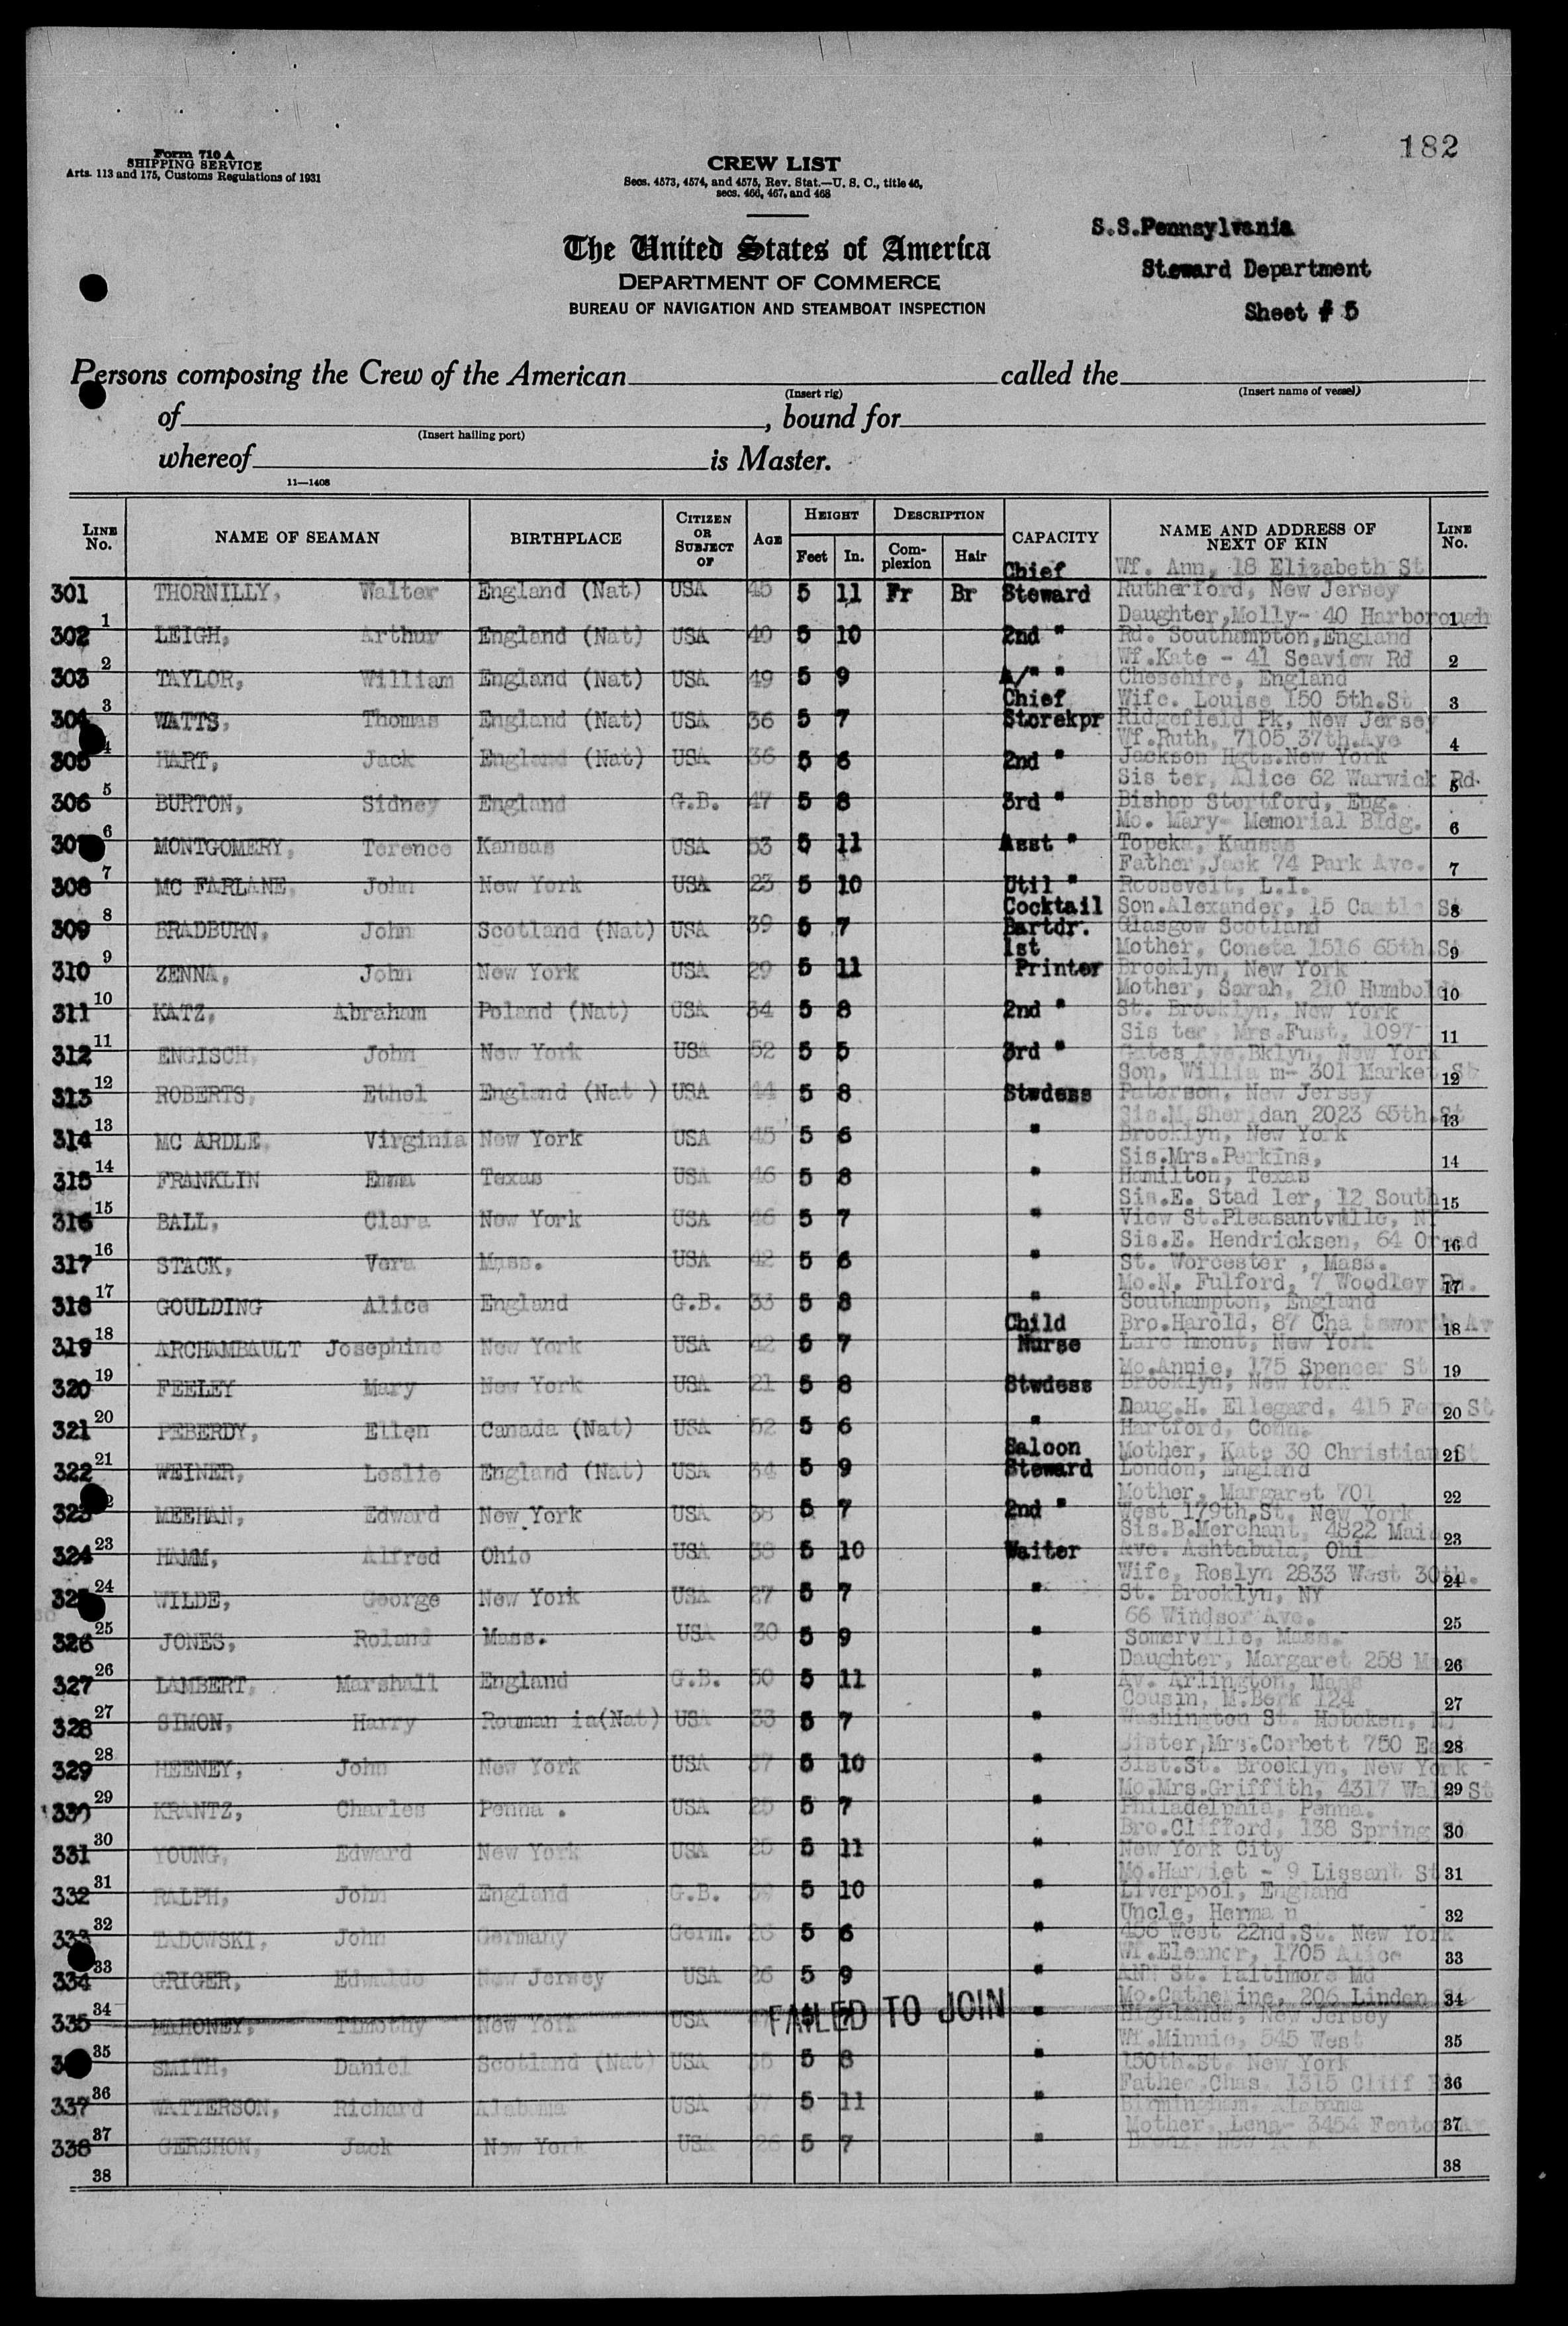 182
Form 710 A
SHIPPING SERVICE
Arts. 113 and 175, Customs Regulations of 1931
CREW LIST
Secs. 4573, 4574, and 4575, Rev. Stat.—U. S. C., title 46,
secs. 466, 467, and 468
The United States of America
DEPARTMENT OF COMMERCE
BUREAU OF NAVIGATION AND STEAMBOAT INSPECTION
S.S.Pennsylvania
Steward Department
Sheet # 5
Persons composing the Crew of the American called the
(Insert rig) (Insert name of vessel)
of , bound for
(Insert hailing port)
whereof is Master.
11—1408
LINE No. NAME OF SEAMAN BIRTHPLACE CITIZEN OR SUBJECT OF AGE HEIGHT Feet In. DESCRIPTION Complexion Hair CAPACITY NAME AND ADDRESS OF NEXT OF KIN LINE No.
Chief Wf. Ann, 18 Elizabeth St
301 THORNILLY, Walter England (Nat) USA 45 5 11 Fr Br Steward Rutherford, New Jersey
1 Daughter,Molly- 40 Harborough 1
302 LEIGH, Arthur England (Nat) USA 40 5 10 2nd " Rd. Southampton,England
2 Wf.Kate - 41 Seaview Rd 2
303 TAYLOR, William England (Nat) USA 49 5 9 A/" " Cheschire, England
3 Chief Wife. Louise 150 5th.St 3
304 WATTS, Thomas England (Nat) USA 36 5 7 Storekpr Ridgefield Pk, New Jersey
4 Wf.Ruth, 7105 37th.Ave 4
305 HART, Jack England (Nat) USA 36 5 6 2nd " Jackson Hgts.New York
5 Sis ter, Alice 62 Warwick Rd. 5
306 BURTON, Sidney England G.B. 47 5 8 3rd " Bishop Stortford, Eng.
6 Mo. Mary- Memorial Bldg. 6
307 MONTGOMERY, Terence Kansas USA 53 5 11 Asst " Topeka, Kansas
7 Father,Jack 74 Park Ave. 7
308 MC FARLANE, John New York USA 23 5 10 Util " Roosevelt, L.I.
8 Cocktail Son.Alexander, 15 Castle St 8
309 BRADBURN, John Scotland (Nat) USA 39 5 7 Bartdr. Glasgow Scotland
9 1st Mother, Coneta 1516 65th.St 9
310 ZENNA, John New York USA 29 5 11 Printer Brooklyn, New York
10 Mother, Sarah, 210 Humboldt 10
311 KATZ, Abraham Poland (Nat) USA 34 5 8 2nd " St. Brooklyn, New York
11 Sis ter, Mrs.Fust, 1097 11
312 ENGISCH, John New York USA 52 5 5 3rd " Gates Ave.Bklyn, New York
12 Son, Willia m- 301 Market St 12
313 ROBERTS, Ethel England (Nat ) USA 44 5 8 Stwdess Paterson, New Jersey
13 Sis.M.Sheridan 2023 65th.St 13
314 MC ARDLE, Virginia New York USA 45 5 6 " Brooklyn, New York
14 Sis.Mrs.Perkins, 14
315 FRANKLIN Emma Texas USA 46 5 8 " Hamilton, Texas
15 Sis.E. Stad ler, 12 South 15
316 BALL, Clara New York USA 46 5 7 " View St.Pleasantville, NY
16 Sis.E. Hendricksen, 64 Oread 16
317 STACK, Vera Mass. USA 42 5 6 " St. Worcester , Mass.
17 Mo.N. Fulford, 7 Woodley Rd. 17
318 GOULDING Alice England G.B. 33 5 8 " Southampton, England
18 Child Bro.Harold, 87 Cha tsworth Av 18
319 ARCHAMBAULT Josephine New York USA 42 5 7 Nurse Larc hmont, New York
19 Mo.Annie, 175 Spencer St 19
320 FEELEY Mary New York USA 21 5 8 Stwdess Brooklyn, New York
20 Daug.H. Ellegard, 415 St 20
321 PEBERDY, Ellen Canada (Nat) USA 52 5 6 " Hartford, Conn.
21 Saloon Mother, Kate 30 Christian St 21
322 WEINER, Leslie England (Nat) USA 34 5 9 Steward London, England
Mother, Margaret 701 22
323 MEEHAN, Edward New York USA 38 5 7 2nd " West 179th.St. New York
23 Sis.B.Merchant, 4822 Main 23
324 HAMM, Alfred Ohio USA 38 5 10 Waiter Ave. Ashtabula, Ohi
24 Wife, Roslyn 2833 West 30th. 24
325 WILDE, George New York USA 27 5 7 " St. Brooklyn, NY
25 66 Windsor Ave. 25
326 JONES, Roland Mass. USA 30 5 9 " Somerville, Mass.
26 Daughter, Margaret 258 26
327 LAMBERT, Marshall England G.B. 50 5 11 " Av. Arlington, Mass
27 Cousin, M.Berk 124 27
328 SIMON, Harry Rouman ia(Nat) USA 33 5 7 " Washington St. Hoboken, NJ
28 Sister,Mrs.Corbett 750 East 28
329 HEENEY, John New York USA 37 5 10 " 31st.St. Brooklyn, New York
29 Mo.Mrs.Griffith, 4317 St 29
330 KRANTZ, Charles Penna . USA 25 5 7 " Philadelphia, Penna.
30 Bro.Clifford, 138 Spring 30
331 YOUNG, Edward New York USA 25 5 11 " New York City
31 Mo.Harriet - 9 Lissant St 31
332 RALPH, John England G.B. 39 5 10 " Liverpool, England
32 Uncle, Herma n 32
333 TADOWSKI, John Germany Germ. 26 5 6 " 408 West 22nd.St. New York
33 Wf.Eleanor, 1705 Alice 33
334 GRIGER, Edwaldo New Jersey USA 26 5 9 " ANN St. Baltimore Md
34 Mo.Catherine, 206 Linden 34
335 MAHONEY, Timothy New York USA FAILED TO JOIN " Highlands, New Jersey
35 Wf.Minnie, 545 West 35
SMITH, Daniel Scotland (Nat) USA 5 8 " 150th.St. New York
36 Father,Chas. 1315 Cliff 36
337 WATTERSON, Richard Alabama USA 37 5 11 " Birmingham, Alabama
37 Mother, Lena- 3454 Fenton 37
338 GERSHON, Jack New York USA 26 5 7 " Bronx, New York
38 38